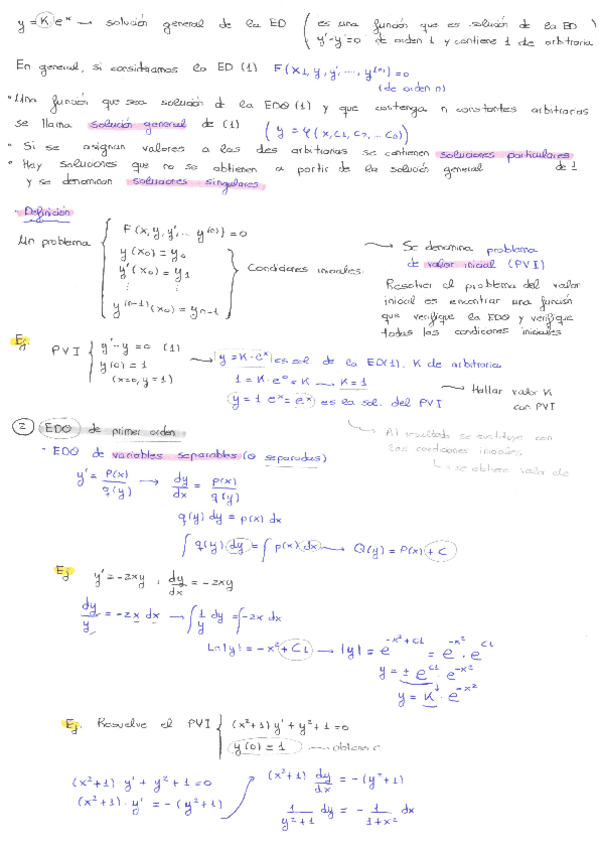 y = K e^x → solución general de la ED ( es una función que es solución de la ED
y'-y=0 de orden 1 y contiene 1 cte arbitraria )
En general, si consideramos la ED (1) F(x, y, y', ..., y^(n)) = 0
(de orden n)
• Una función que sea solución de la EDO (1) y que contenga n constantes arbitrarias
se llama solución general de (1) ( y = φ(x, C1, C2, ... Cn) )
• Si se asignan valores a las ctes arbitrarias se obtienen soluciones particulares de 1
• Hay soluciones que no se obtienen a partir de la solución general
y se denominan soluciones singulares
- Definición
Un problema { F(x, y, y', ... y^(n)) = 0
y(x0) = y0
y'(x0) = y1
⋮ ⋮
y^(n-1)(x0) = yn-1 } Condiciones iniciales
→ Se denomina problema
de valor inicial (PVI)
Resolver el problema del valor
inicial es encontrar una función
que verifique la EDO y verifique
todas las condiciones iniciales
Ej PVI { y'-y=0 (1)
y(0)=1
(x=0, y=1)
→ y=K·e^x es sol de la ED(1). K cte arbitraria
1 = K·e^0 = K → K=1
y=1 e^x = e^x es la sol. del PVI
→ Hallar valor K
con PVI
→ Al resultado se sustituye con
las condiciones iniciales
→ se obtiene valor de
② EDO de primer orden
- EDO de variables separables (o separadas)
y' = p(x)/q(y) → dy/dx = p(x)/q(y)
q(y) dy = p(x) dx
∫ q(y) dy = ∫ p(x) dx → Q(y) = P(x) + C
Ej y' = -2xy , dy/dx = -2xy
dy/y = -2x dx → ∫ 1/y dy = ∫ -2x dx
Ln|y| = -x² + C1 → |y| = e^(-x²+C1) = e^(-x²) · e^(C1)
y = ± e^(C1) · e^(-x²)
y = K · e^(-x²)
Ej. Resuelve el PVI { (x²+1) y' + y² + 1 = 0
y(0) = 1 → obtener c
(x²+1) y' + y² + 1 = 0
(x²+1) · y' = -(y²+1)
(x²+1) dy/dx = -(y²+1)
1/(y²+1) dy = - 1/(1+x²) dx